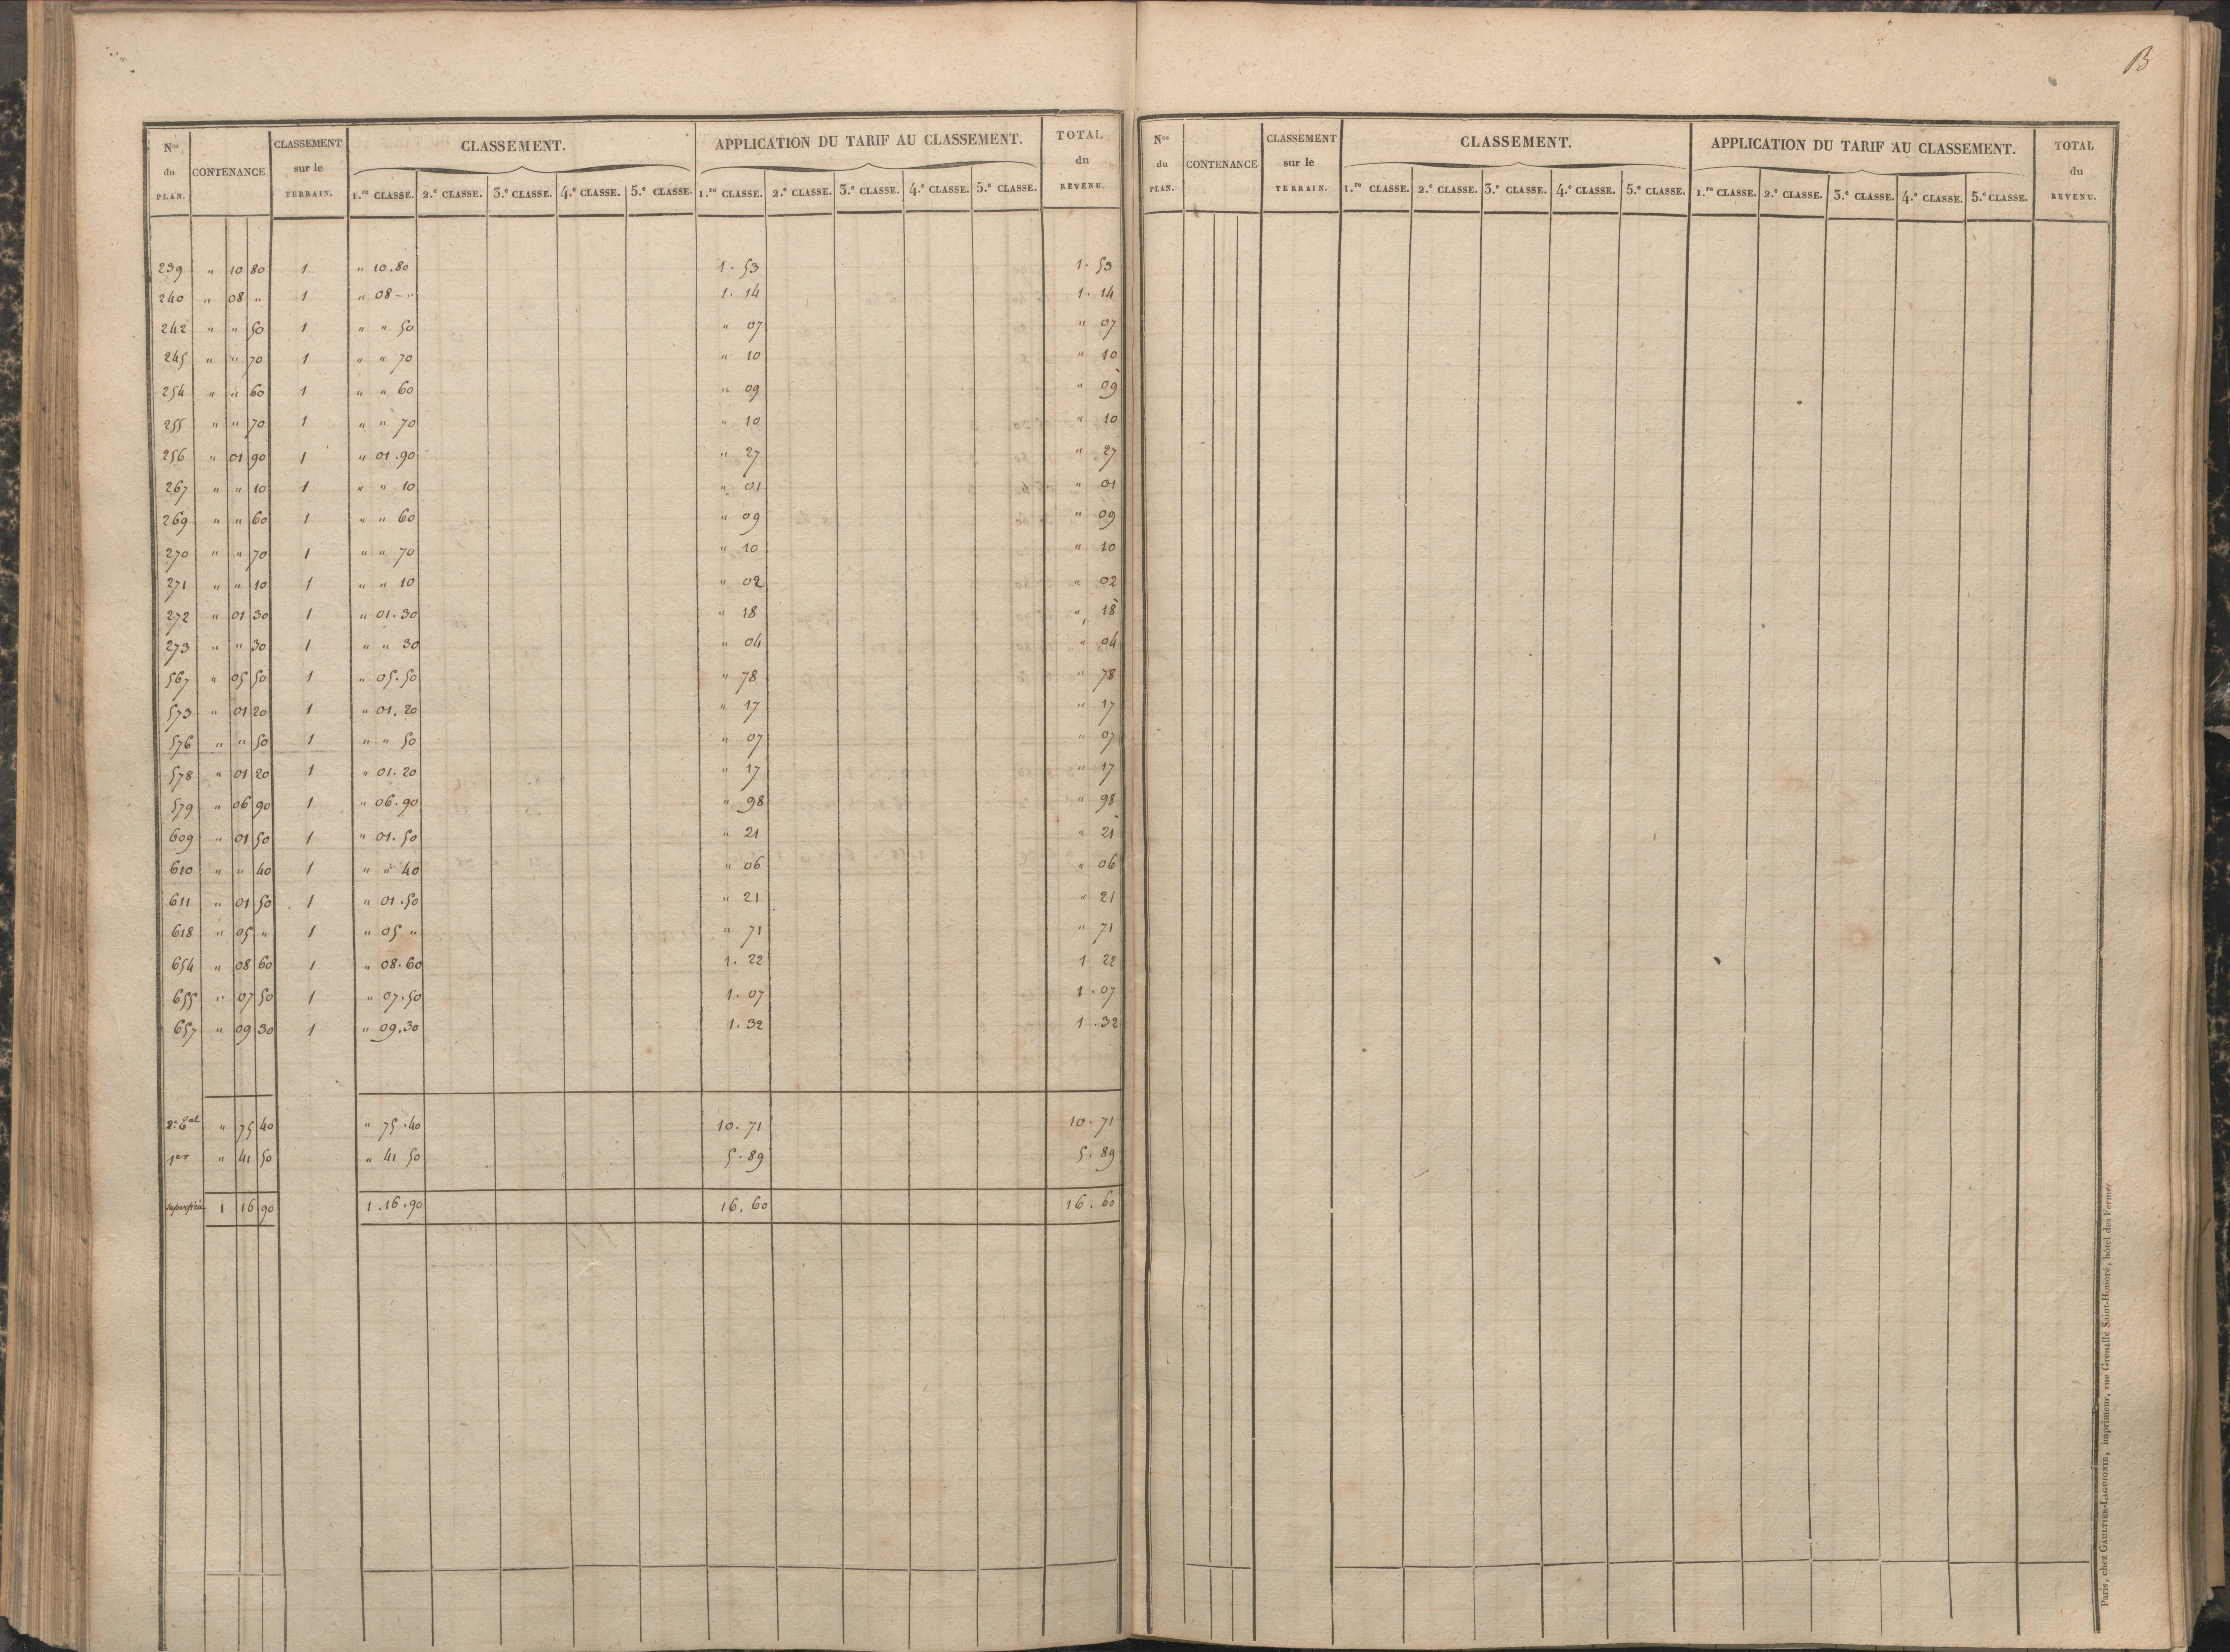 B
Nos du PLAN. CONTENANCE. CLASSEMENT sur le TERRAIN. CLASSEMENT. APPLICATION DU TARIF AU CLASSEMENT. TOTAL du REVENU.
1.re CLASSE. 2.e CLASSE. 3.e CLASSE. 4.e CLASSE. 5.e CLASSE. 1.re CLASSE. 2.e CLASSE. 3.e CLASSE. 4.e CLASSE. 5.e CLASSE.
239 " 10 80 1 " 10.80 1. 53 1. 53
240 " 08 " 1 " 08 – " 1. 14 1. 14
242 " " 50 1 " " 50 " 07 " 07
245 " " 70 1 " " 70 " 10 " 10
254 " " 60 1 " " 60 " 09 " 09
255 " " 70 1 " " 70 " 10 " 10
256 " 01 90 1 " 01.90 " 27 " 27
267 " " 10 1 " " 10 " 01 " 01
269 " " 60 1 " " 60 " 09 " 09
270 " " 70 1 " " 70 " 10 " 10
271 " " 10 1 " " 10 " 02 " 02
272 " 01 30 1 " 01.30 " 18 " 18
273 " " 30 1 " " 30 " 04 " 04
567 " 05 50 1 " 05.50 " 78 " 78
573 " 01 20 1 " 01.20 " 17 " 17
576 " " 50 1 " " 50 " 07 " 07
578 " 01 20 1 " 01.20 " 17 " 17
579 " 06 90 1 " 06.90 " 98 " 98
609 " 01 50 1 " 01.50 " 21 " 21
610 " " 40 1 " " 40 " 06 " 06
611 " 01 50 1 " 01.50 " 21 " 21
618 " 05 " 1 " 05 " " 71 " 71
654 " 08 60 1 " 08.60 1. 22 1 22
655 " 07 50 1 " 07.50 1. 07 1.07
657 " 09 30 1 " 09.30 1. 32 1.32
" 75 40 " 75.40 10. 71 10. 71
1er " 41 50 " 41 50 5. 89 5. 89
1 16 90 1.16.90 16. 60 16. 60
Nos du PLAN. CONTENANCE CLASSEMENT sur le TERRAIN. CLASSEMENT. APPLICATION DU TARIF AU CLASSEMENT. TOTAL du REVENU.
1.re CLASSE. 2.e CLASSE. 3.e CLASSE. 4.e CLASSE. 5.e CLASSE. 1.re CLASSE. 2.e CLASSE. 3.e CLASSE. 4.e CLASSE. 5.e CLASSE.
Paris, chez GAULTIER-LAGUIONIE, imprimeur, rue Grenelle Saint-Honoré, hôtel des Fermes